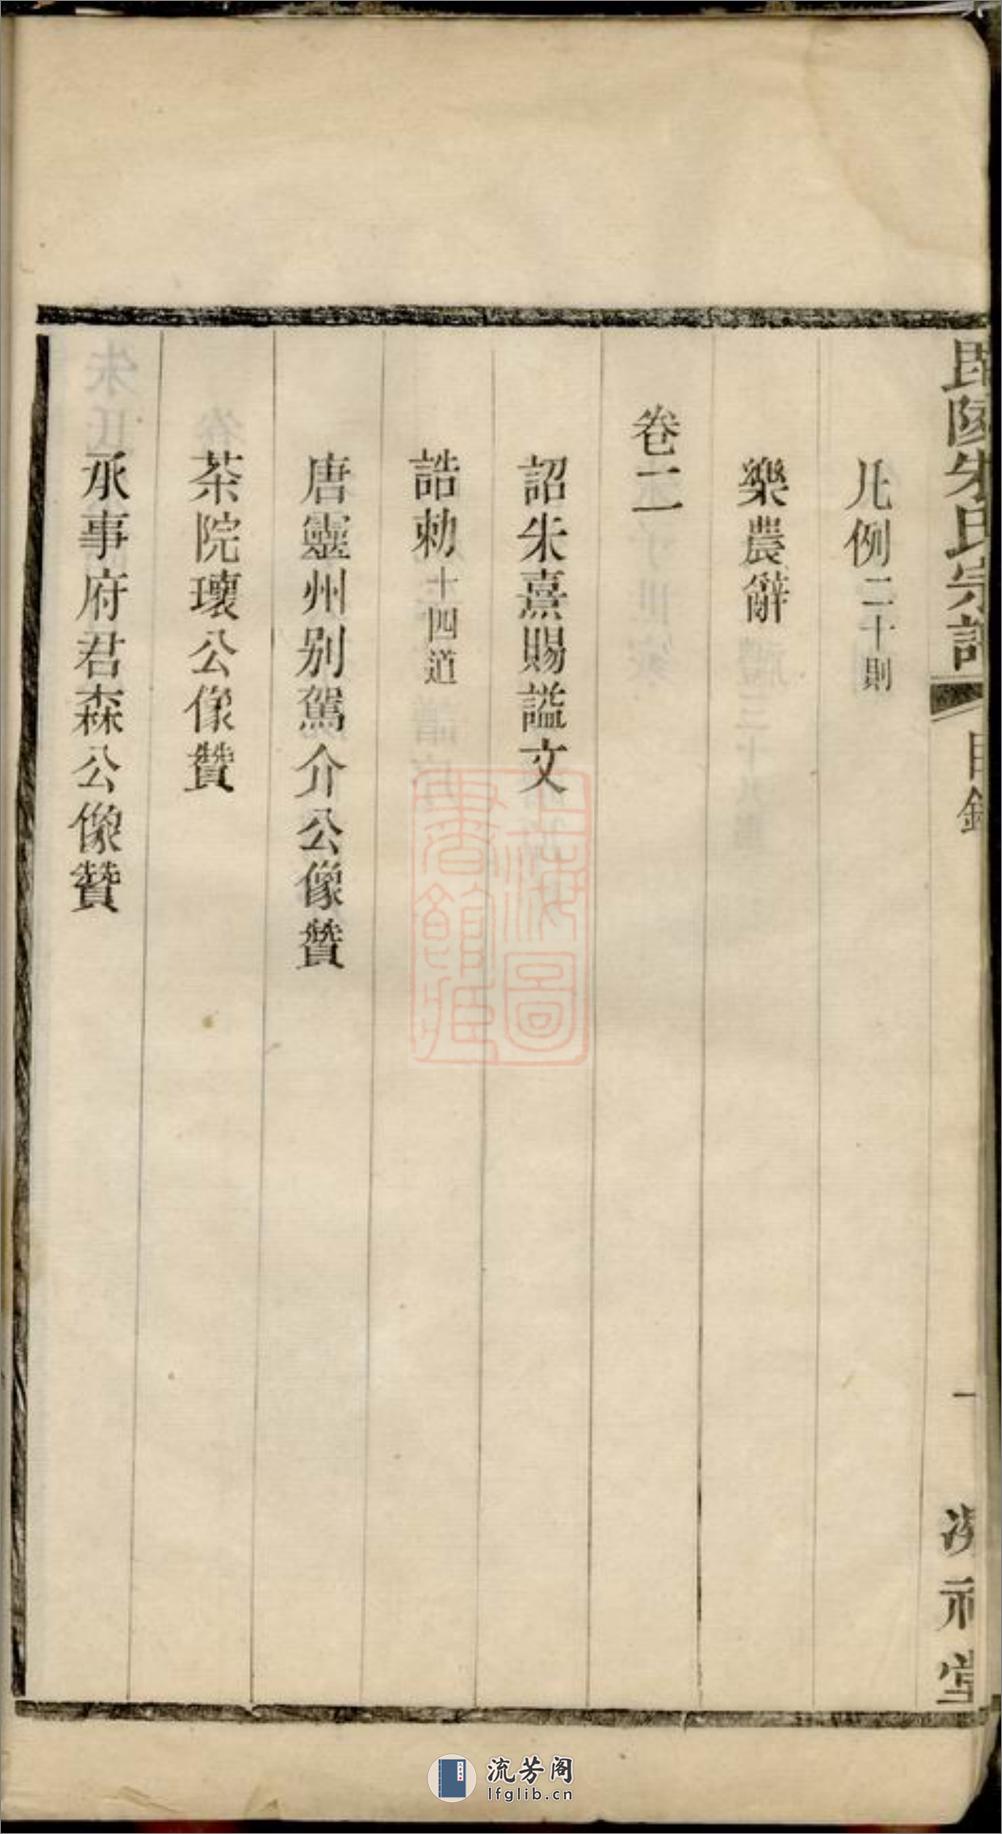 毘陵朱氏宗譜
目錄
一
凡例二十則
樂農辭
卷二
詔朱熹賜諡文
誥勅十四道
唐靈州別駕介公像贊
茶院瓌公像贊
承事府君森公像贊
上海圖書館藏
流芳阁
lfglib.cn